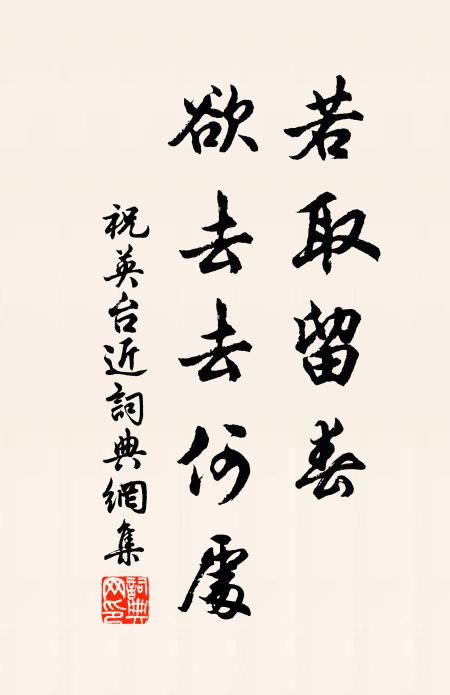 若取留春
欲去去何處
祝英台近詞典網集
詞典網印